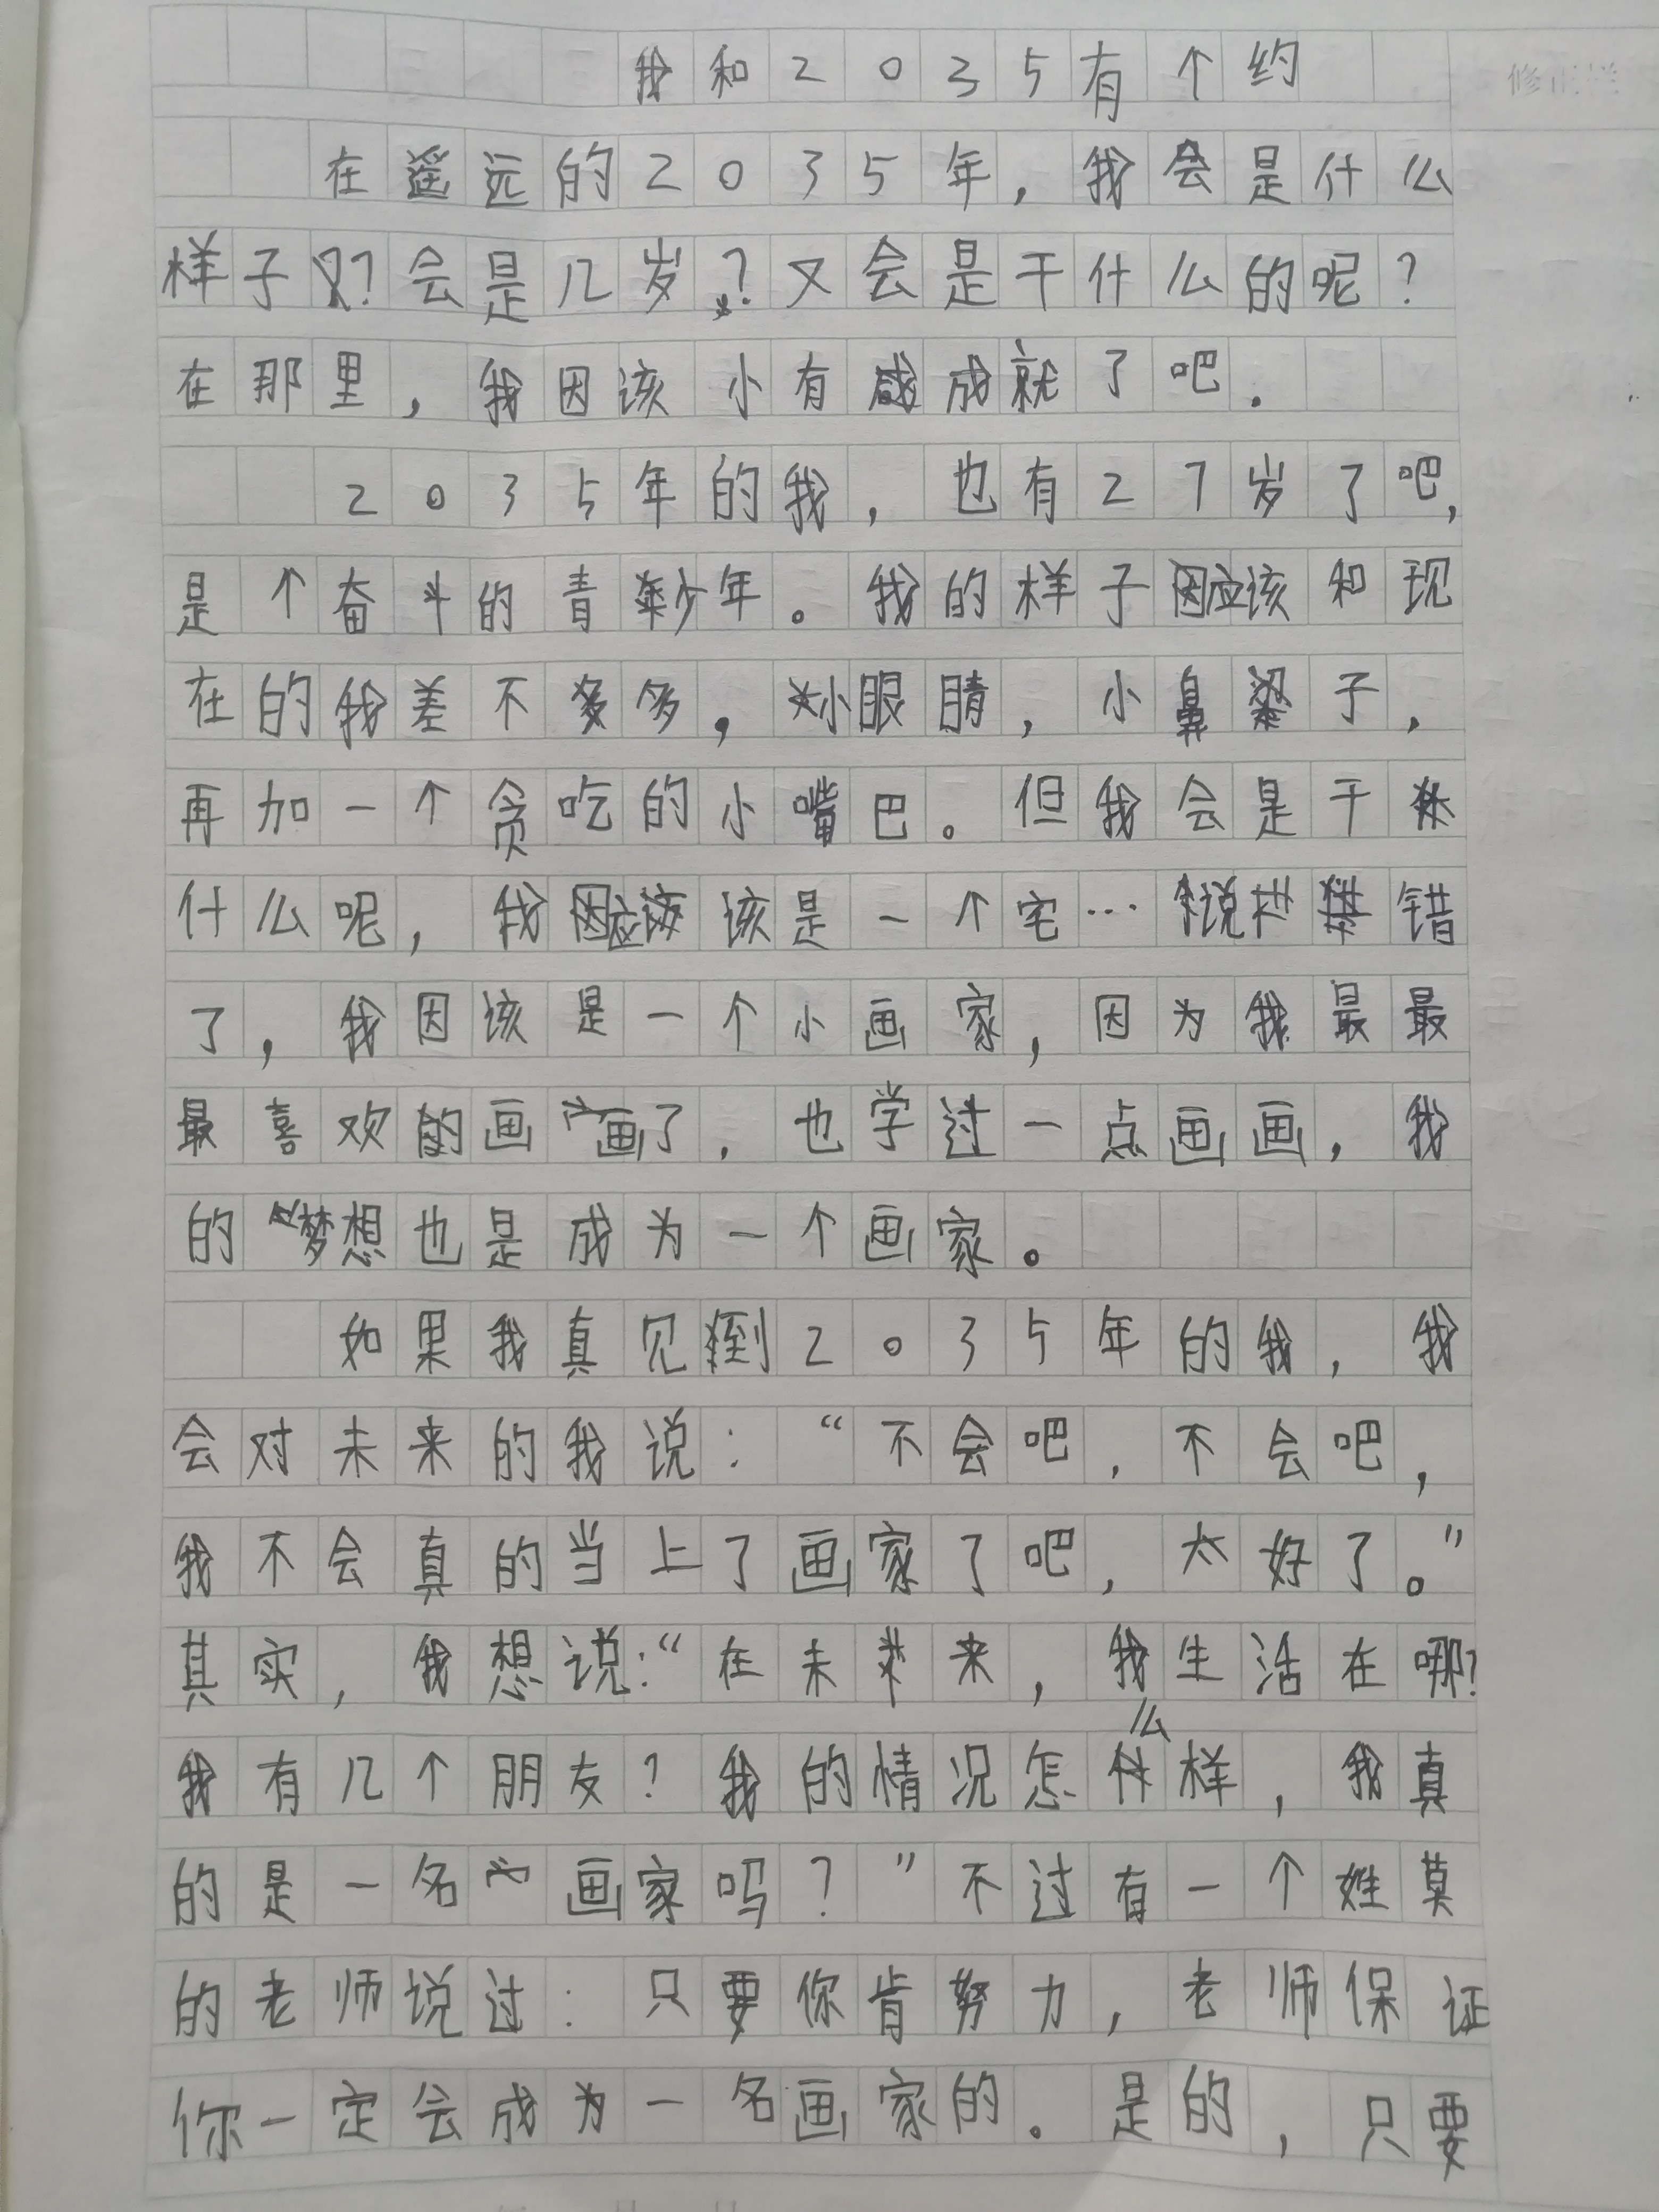 我和2035有个约
修正栏
在遥远的2035年，我会是什么
样子？会是几岁？又会是干什么的呢？
在那里，我因该小有成就了吧.
2035年的我，也有27岁了吧,
是个奋斗的青少年。我的样子应该和现
在的我差不多，小眼睛，小鼻子，
再加一个贪吃的小嘴巴。但我会是干
什么呢，我应该是一个宅…说错
了，我因该是一个小画家，因为我最最
最喜欢的画画了，也学过一点画画，我
的梦想也是成为一个画家。
如果我真见到2035年的我，我
会对未来的我说：“不会吧，不会吧，
我不会真的当上了画家了吧，太好了。”
其实，我想说：“在未来，我生活在哪？
我有几个朋友？我的情况怎么样，我真
的是一名画家吗？”不过有一个姓莫
的老师说过：只要你肯努力，老师保证
你一定会成为一名画家的。是的，只要